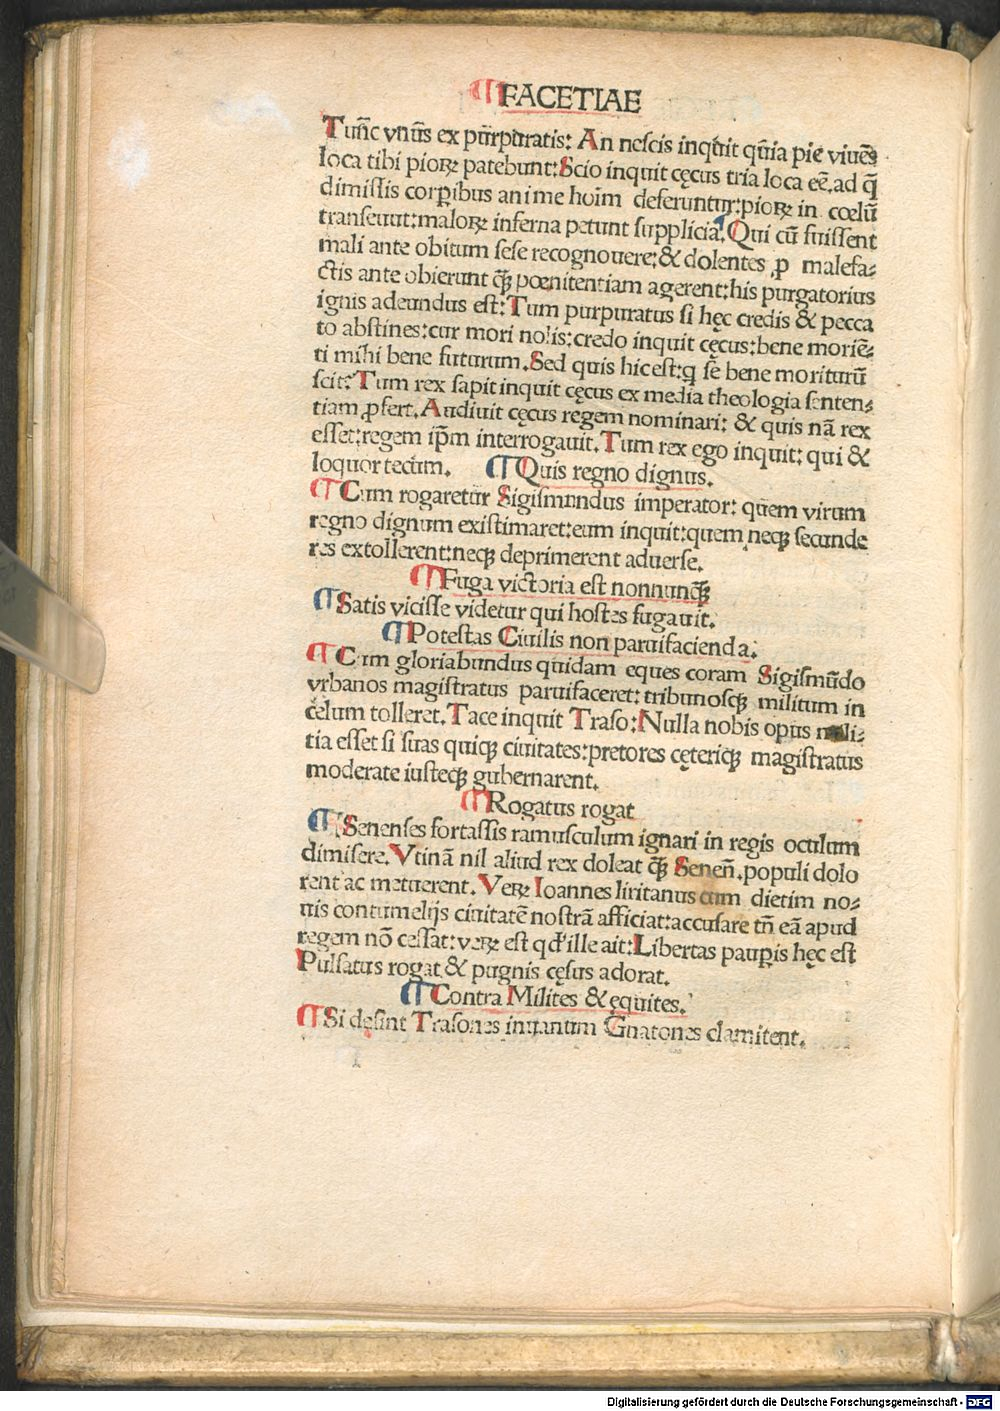 ¶FACETIAE
Tunc vnus ex purpuratis: An nescis inquit quia pie viuēs
loca tibi pioꝝ patebunt: Scio inquit cęcus tria loca eē, ad q̄
dimissis corꝑibus anime hoīm deferuntur: pioꝝ in cœlū
transeunt: maloꝝ inferna petunt supplicia, Qui cū fuissent
mali ante obitum sese recognouere: & dolentes ꝓ malefa-
ctis ante obierunt ꝙ̄ pœnitentiam agerent: his purgatorius
ignis adeundus est: Tum purpuratus si hęc credis & pecca
to abstines: cur mori nolis: credo inquit cęcus: bene moriē-
ti mihi bene futurum. Sed quis hic est: q̄ se bene moriturū
scit: Tum rex sapit inquit cęcus ex media theologia senten-
tiam ꝓfert. Audiuit cęcus regem nominari: & quis nā rex
esset: regem ip̄m interrogauit. Tum rex ego inquit: qui &
loquor tecum. ¶Quis regno dignus.
¶Cum rogaretur Sigismundus imperator: quem virum
regno dignum existimaret: eum inquit: quem neqꝫ secunde
res extollerent: neqꝫ deprimerent aduerse.
¶Fuga victoria est nonnunꝙ̄
¶Satis vicisse videtur qui hostes fugauit.
¶Potestas Ciuilis non paruifacienda.
¶Cum gloriabundus quidam eques coram Sigismūdo
vrbanos magistratus paruifaceret: tribunosqꝫ militum in
celum tolleret. Tace inquit Traso: Nulla nobis opus mili-
tia esset si suas quiqꝫ ciuitates: pretores cęteriqꝫ magistratus
moderate iusteqꝫ gubernarent.
¶Rogatus rogat
¶Senenses fortassis ramusculum ignari in regis oculum
dimisere. Vtinā nil aliud rex doleat ꝙ̄ Seneñ. populi dolo
rent ac metuerent. Veꝝ Ioannes liritanus cum dietim no-
uis contumelijs ciuitatē nostrā afficiat: accusare tn̄ eā apud
regem nō cessat: veꝝ est qđ ille ait: Libertas pauꝑis hęc est
Pulsatus rogat & pugnis cęsus adorat.
¶Contra Milites & ęquites.
¶Si desint Trasones inquantum Gnatones clamitent.
Digitalisierung gefördert durch die Deutsche Forschungsgemeinschaft - DFG